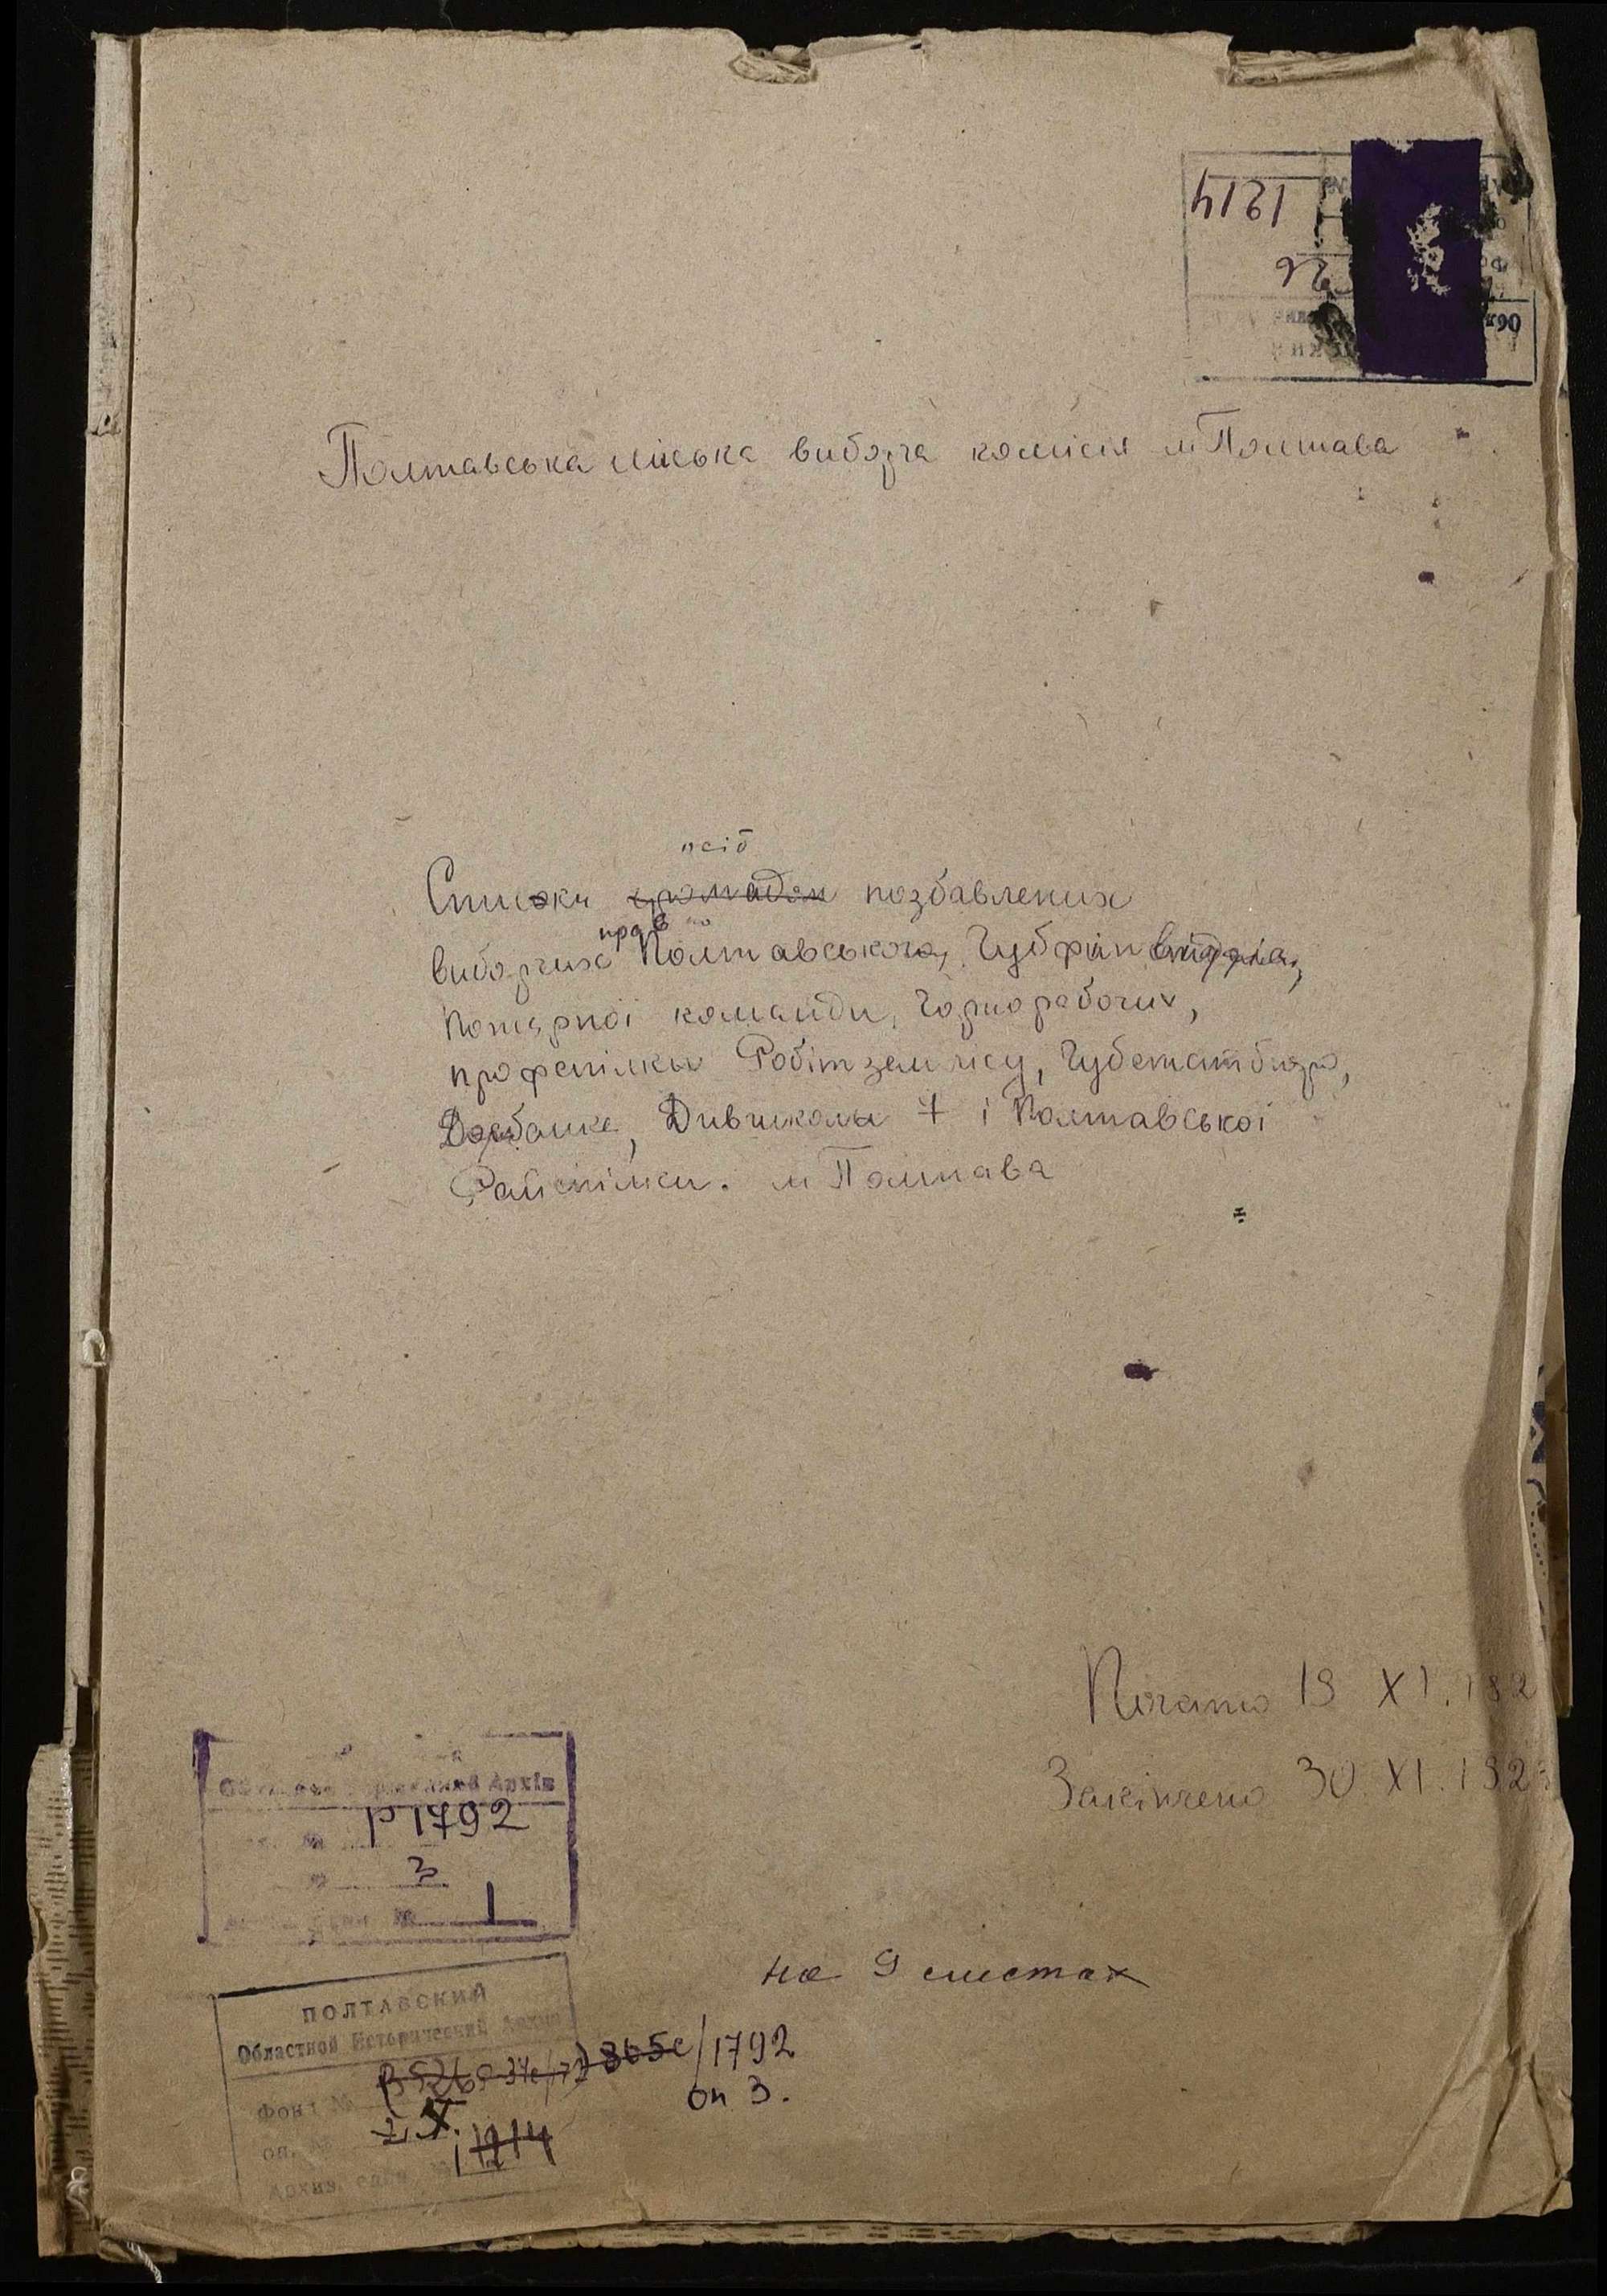 1214
26
Обл
Полтавська міська виборча комісія м Полтава
осіб
Списки громадян позбавлених
прав по
виборчих Полтавського, Губфінвідділа,
Пожарної команди, Чорнорабочих,
профспілки Робітземлісу, Губстатбюро,
банка, Дившколи 7 і Полтавської
Райспілки. м Полтава
Почато 19 XI. 192
Закінчено 30. XI. 192
Архів
№ Р1792
№ 3
№ 1
на 9 листах
ПОЛТАВСКИЙ
Областной Исторический Архив
Фонд № 365с/1792
оп 3.
оп. №
Архив. един. № 1 1214